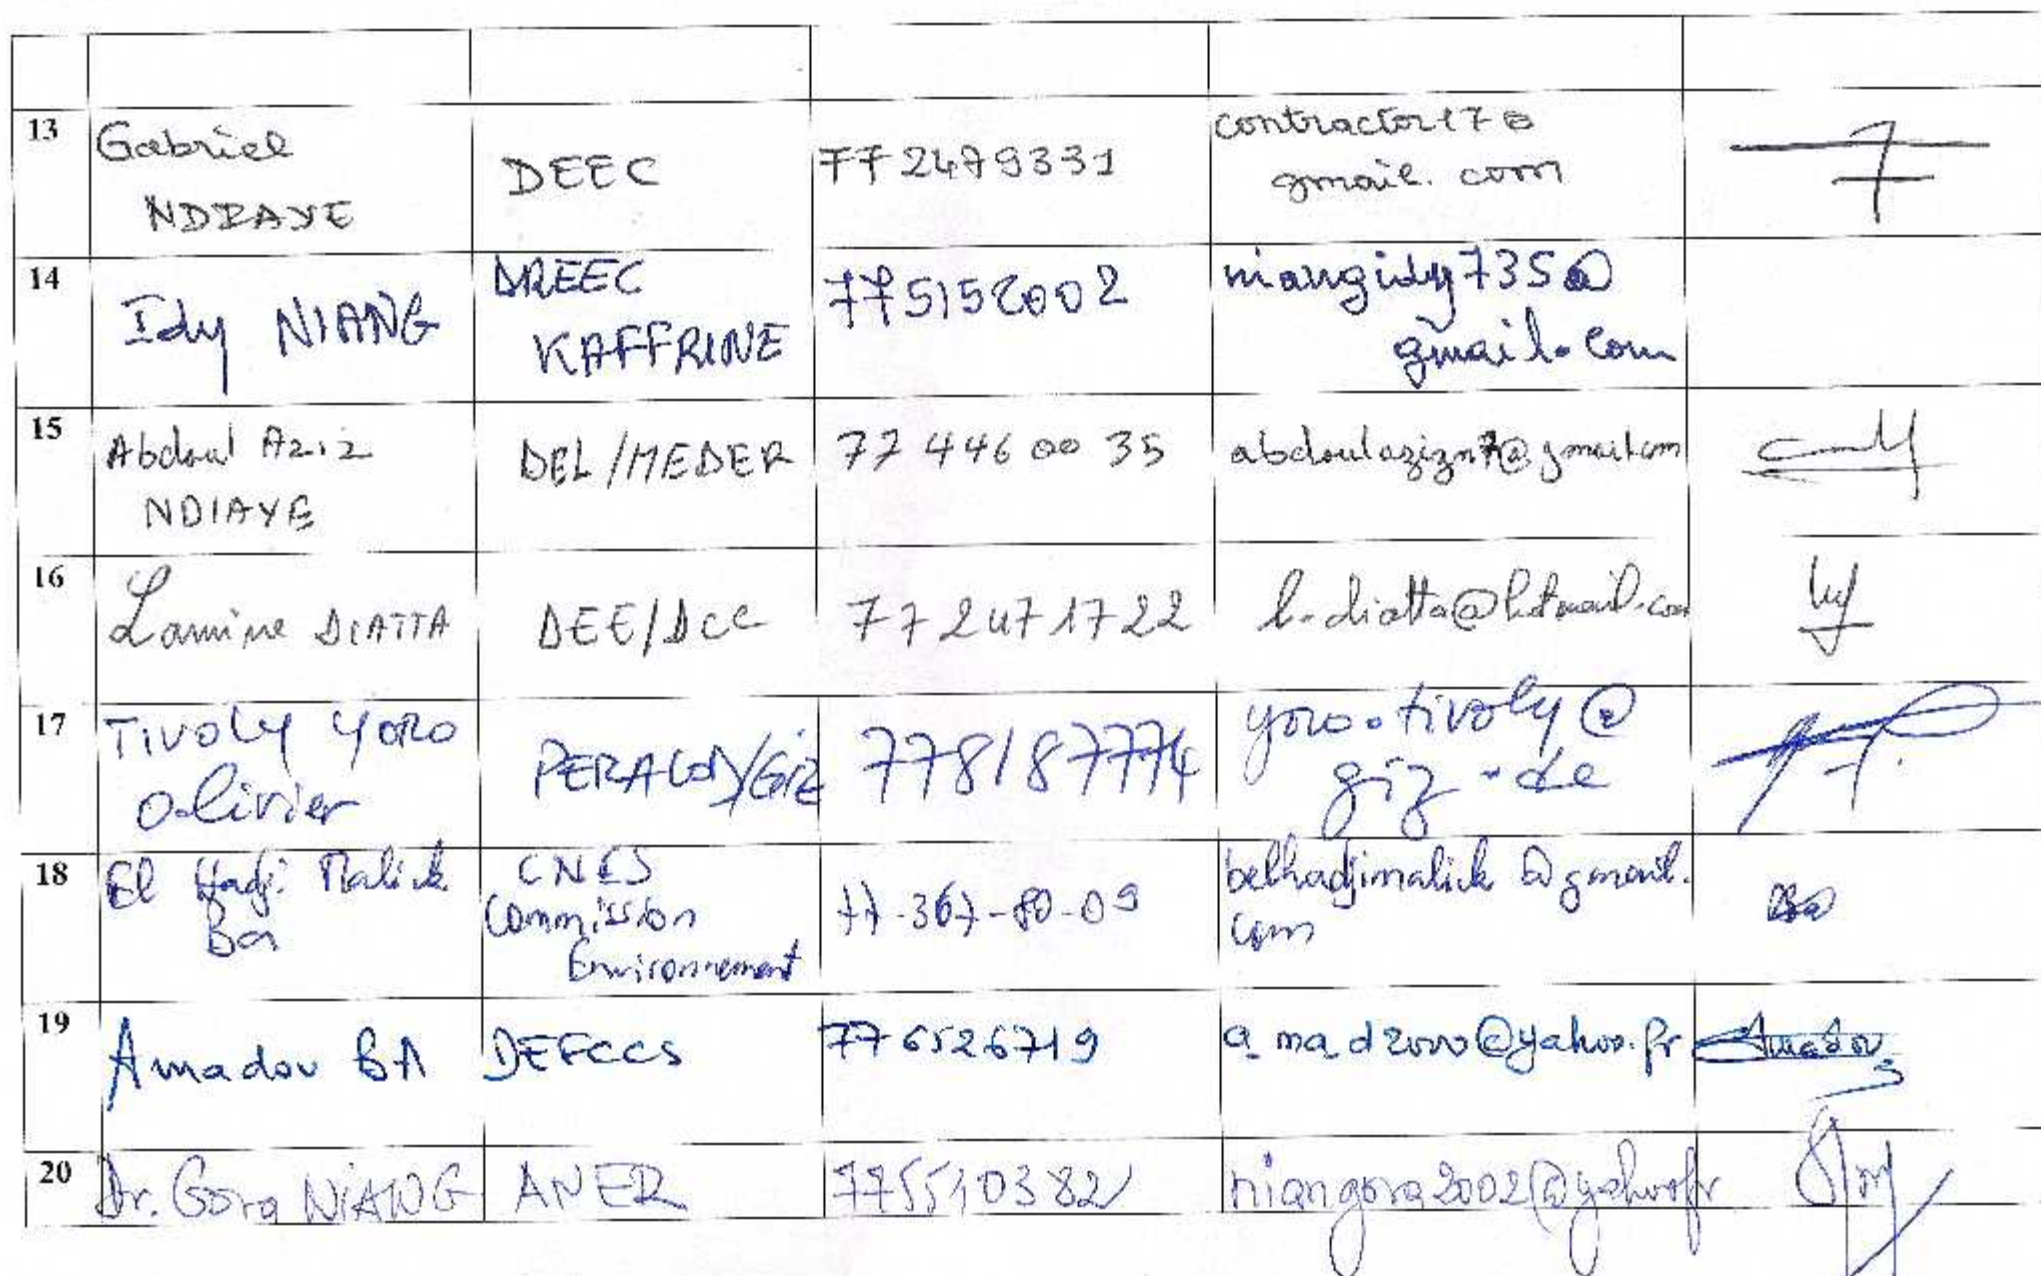 13 Gabriel NDIAYE DEEC 772479331 contractor17@
gmail.com
14 Idy NIANG DREEC KAFFRINE 775152002 niangidy735@
gmail.com
15 Abdoul Aziz NDIAYE DEL/MEDER 77 446 00 35 abdoulazizn7@gmail.com
16 Lamine DIATTA DEE/DCC 77 247 17 22 l.diatta@hotmail.com
17 Tivoly Yoro Olivier PERACOD/GIZ 778187774 yoro.tivoly@
giz.de
18 El Hadji Malick Ba CNES Commission Environnement 77-367-80-09 belhadjimalick@gmail.
com
19 Amadou BA DEFCCS 776526719 a_mad2000@yahoo.fr Amadou
20 Dr. Gora NIANG ANER 775510382 niangora2002@yahoo.fr